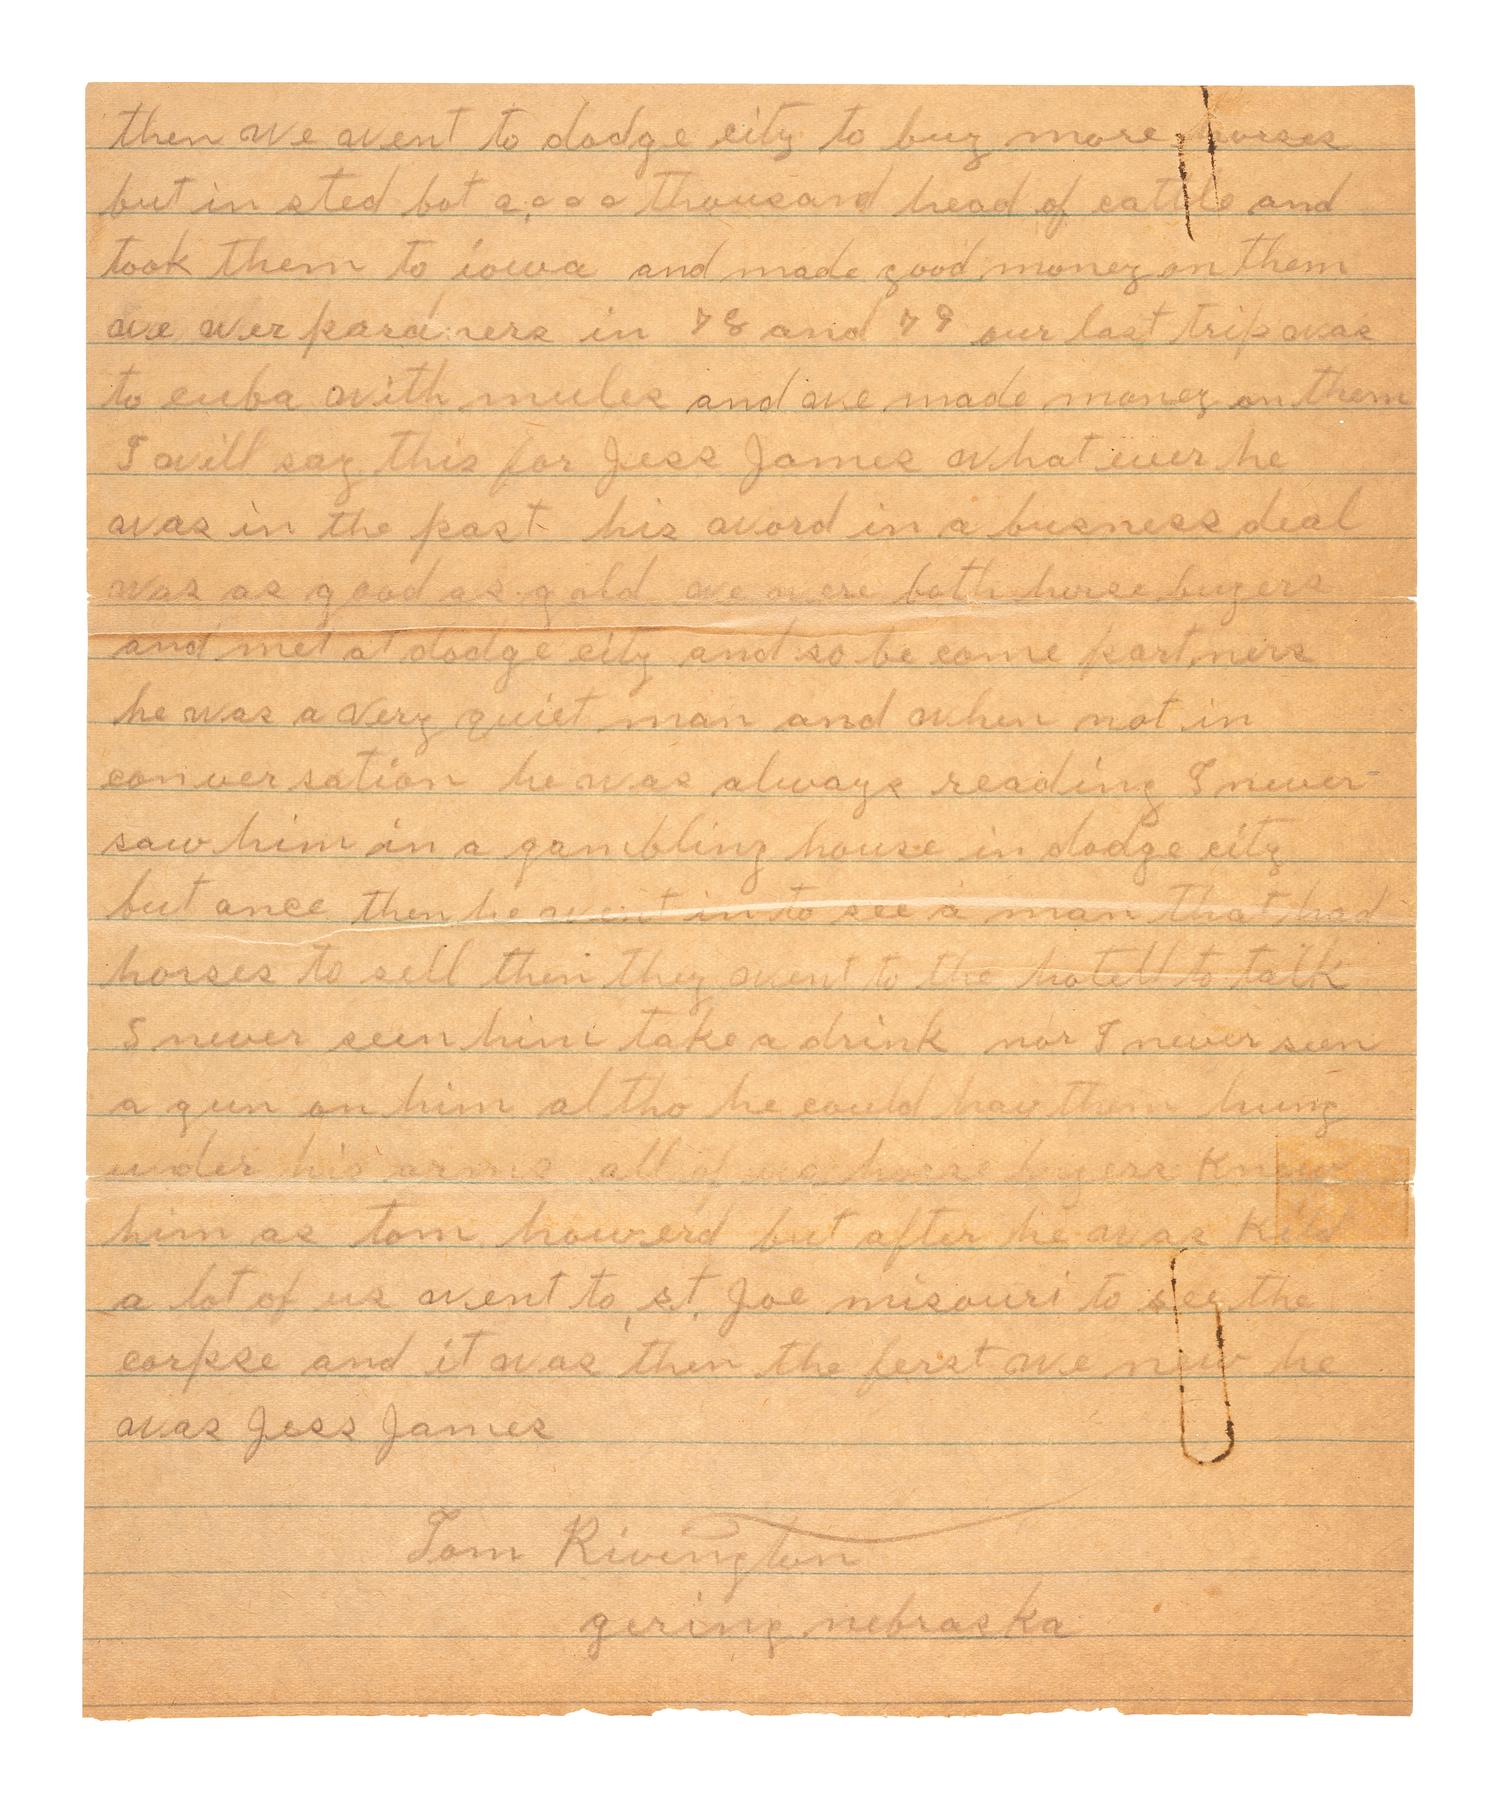 then we went to dodge city to buy more horses
but in sted bot 2,000 thousand head of cattle and
took them to iowa and made good money on them
we wer pardners in 78 and 79 our last trip was
to cuba with mules and we made money on them
I will say this for Jess James what ever he
was in the past his word in a busness deal
was as good as gold we were both horse buyers
and met at dodge city and so be come partners
he was a very quiet man and when not in
conversation he was always reading I never
saw him in a gambling house in dodge city
but once then he went in to see a man that had
horses to sell then they went to the hotell to talk
I never seen him take a drink nor I never seen
a gun on him altho he could hav them hung
under his arms all of us horse buyers knew
him as tom howerd but after he was kild
a lot of us went to st. Joe misouri to see the
corpse and it was then the ferst we new he
was Jess James
Tom Rivington
gering nebraska